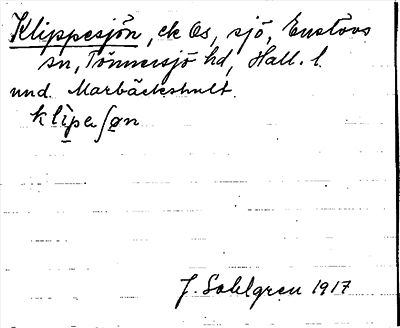 Klippesjön, ek Os, sjö, Enslövs
sn, Tönnersjö hd, Hall. l.
und. Marbäckshult.
klìpeʃøn
J. Sahlgren 1917